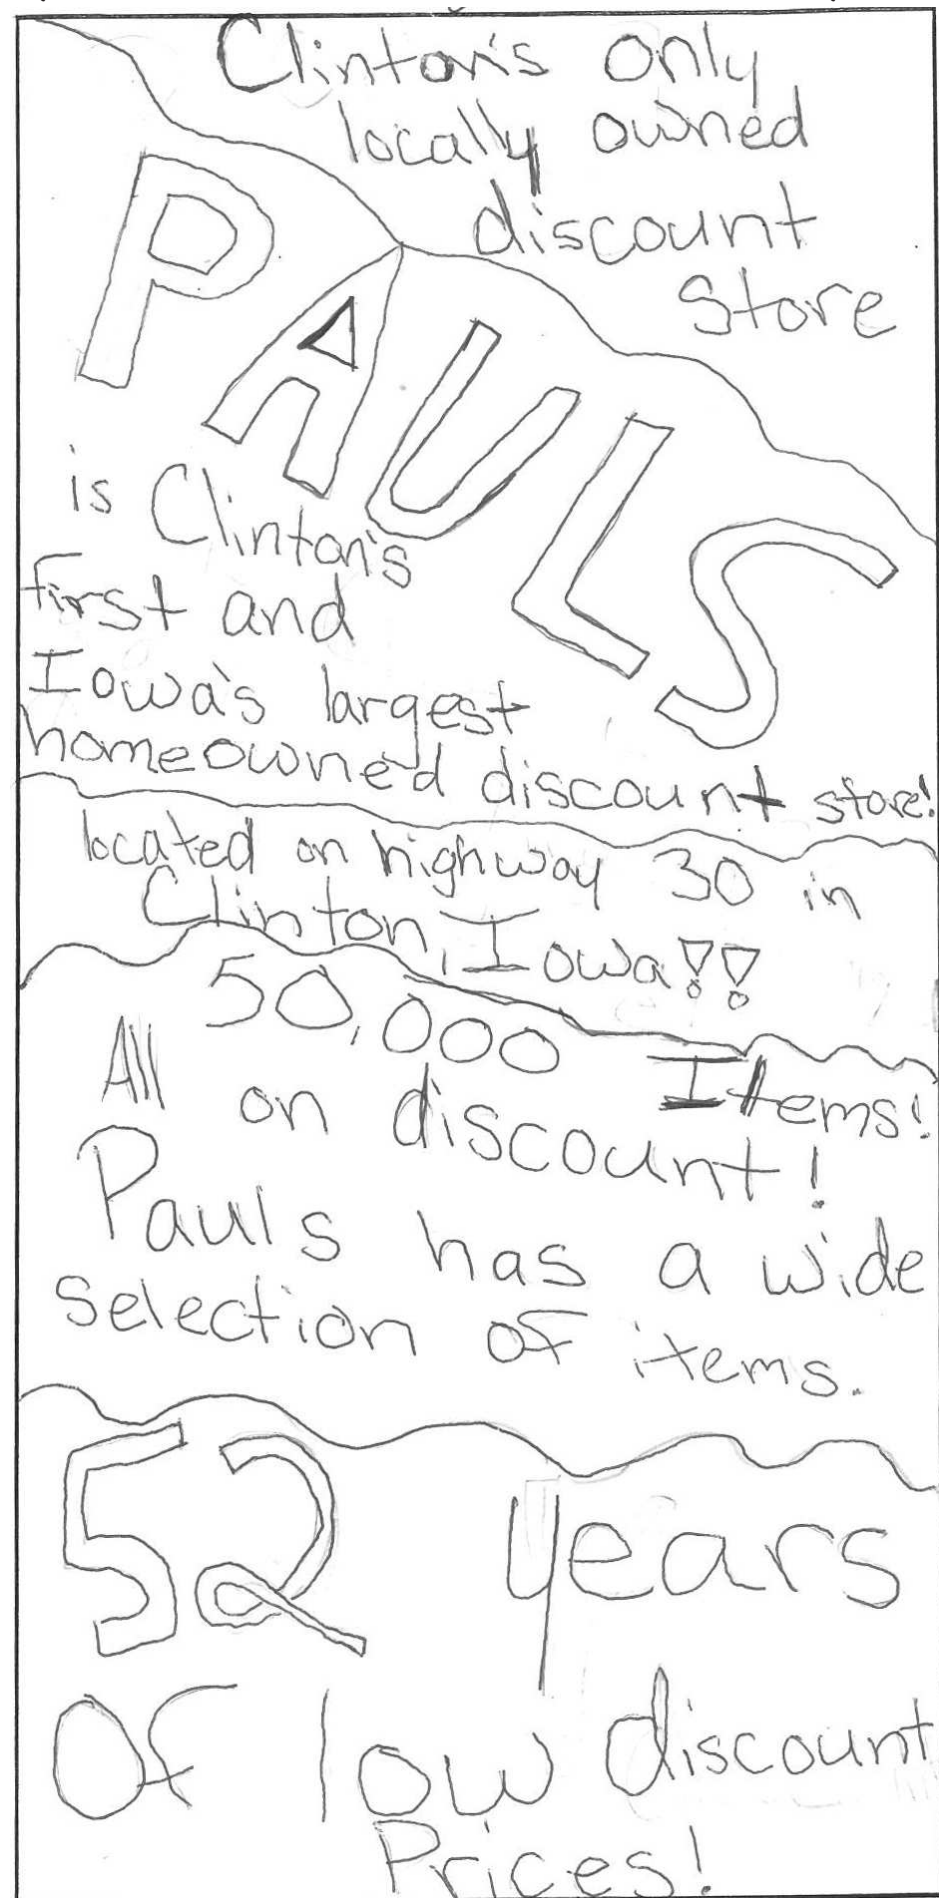 Clinton's only
locally owned
discount
store
PAULS
is Clinton's
first and
Iowa's largest
homeowned discount store!
located on highway 30 in
Clinton, Iowa!!
50,000 Items!
All on discount!
Pauls has a wide
selection of items.
52 years
Of low discount
Prices!